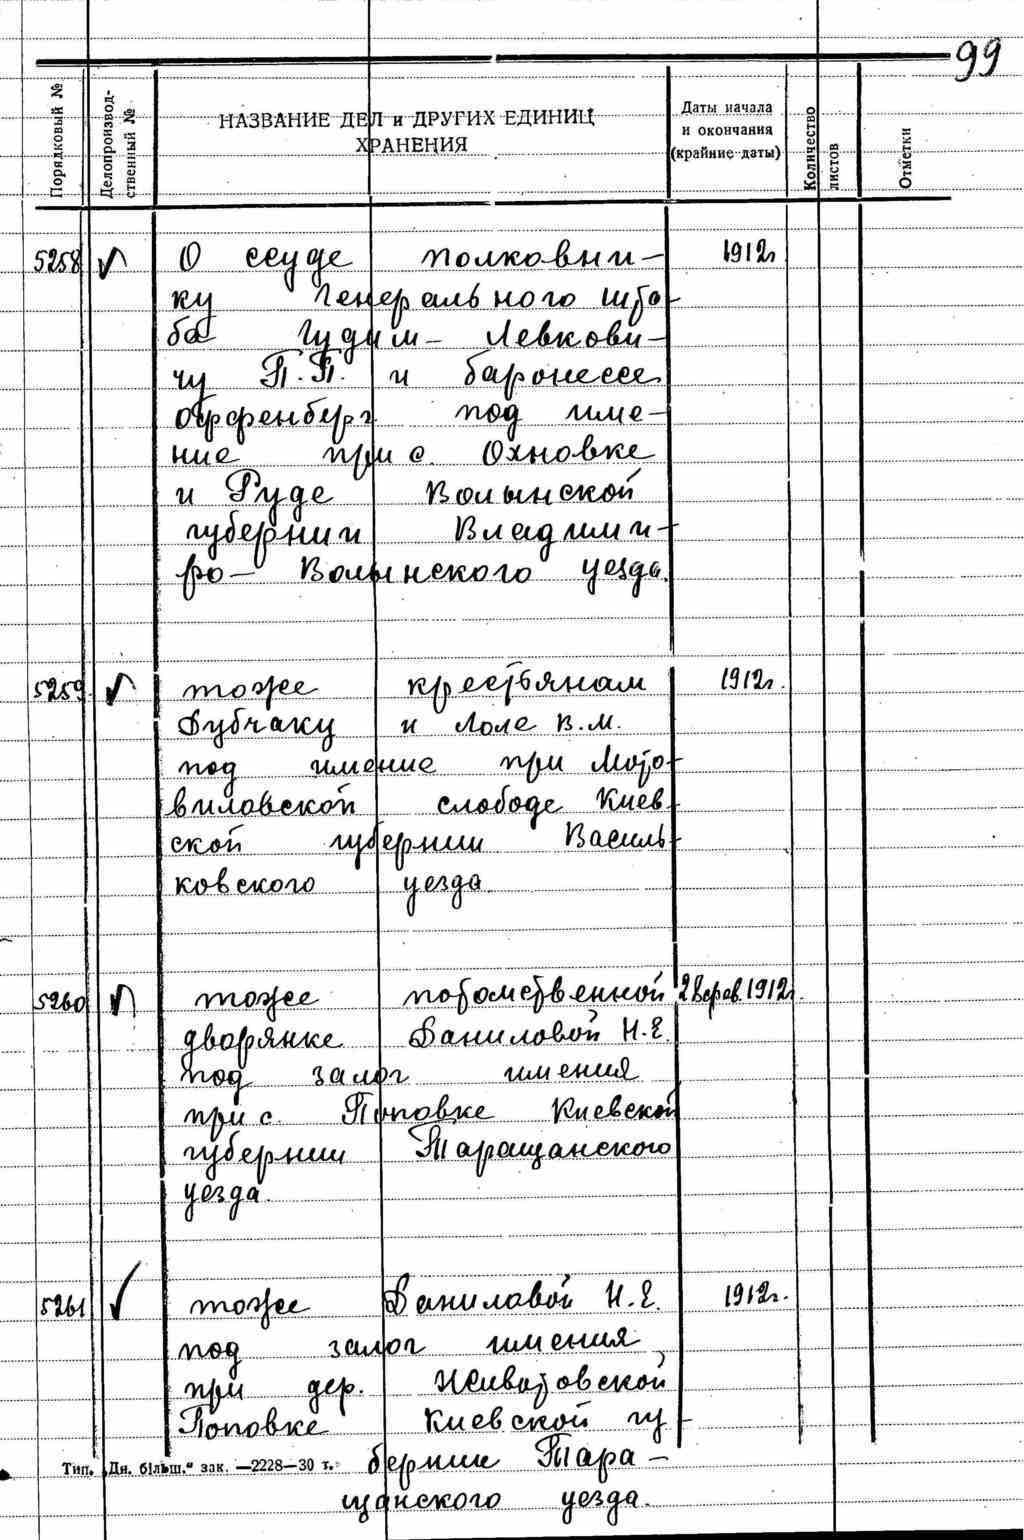 99
Порядковый №
Делопроизвод-
ственный №
НАЗВАНИЕ ДЕЛ и ДРУГИХ ЕДИНИЦ
ХРАНЕНИЯ
Даты начала
и окончания
(крайние даты)
Количество
листов
Отметки
5258 О ссуде полковни- 1912г
ку генерального шта-
ба Гудим-Левкови-
чу П.П. и баронессе
Оффенберг под име-
ние при с. Охновке
и Руде Волынской
губернии Владими-
ро-Волынского уезда.
5259 тоже крестьянам 1912г.
Дубчаку и Лоле В.М.
под имение при Мото-
виловской слободе Киев-
ской губернии Василь-
ковского уезда
5260 тоже потомственной 1912г.
дворянке Даниловой Н.Е.
под залог имения
при с. Поповке Киевской
губернии Таращанского
уезда.
5261 тоже Даниловой Н.Е. 1912г.
под залог имения
при дер. Животовской
Поповке Киевской гу-
бернии Тара-
щанского уезда.
Тип. „Дн. більш." зак. —2228—30 т.